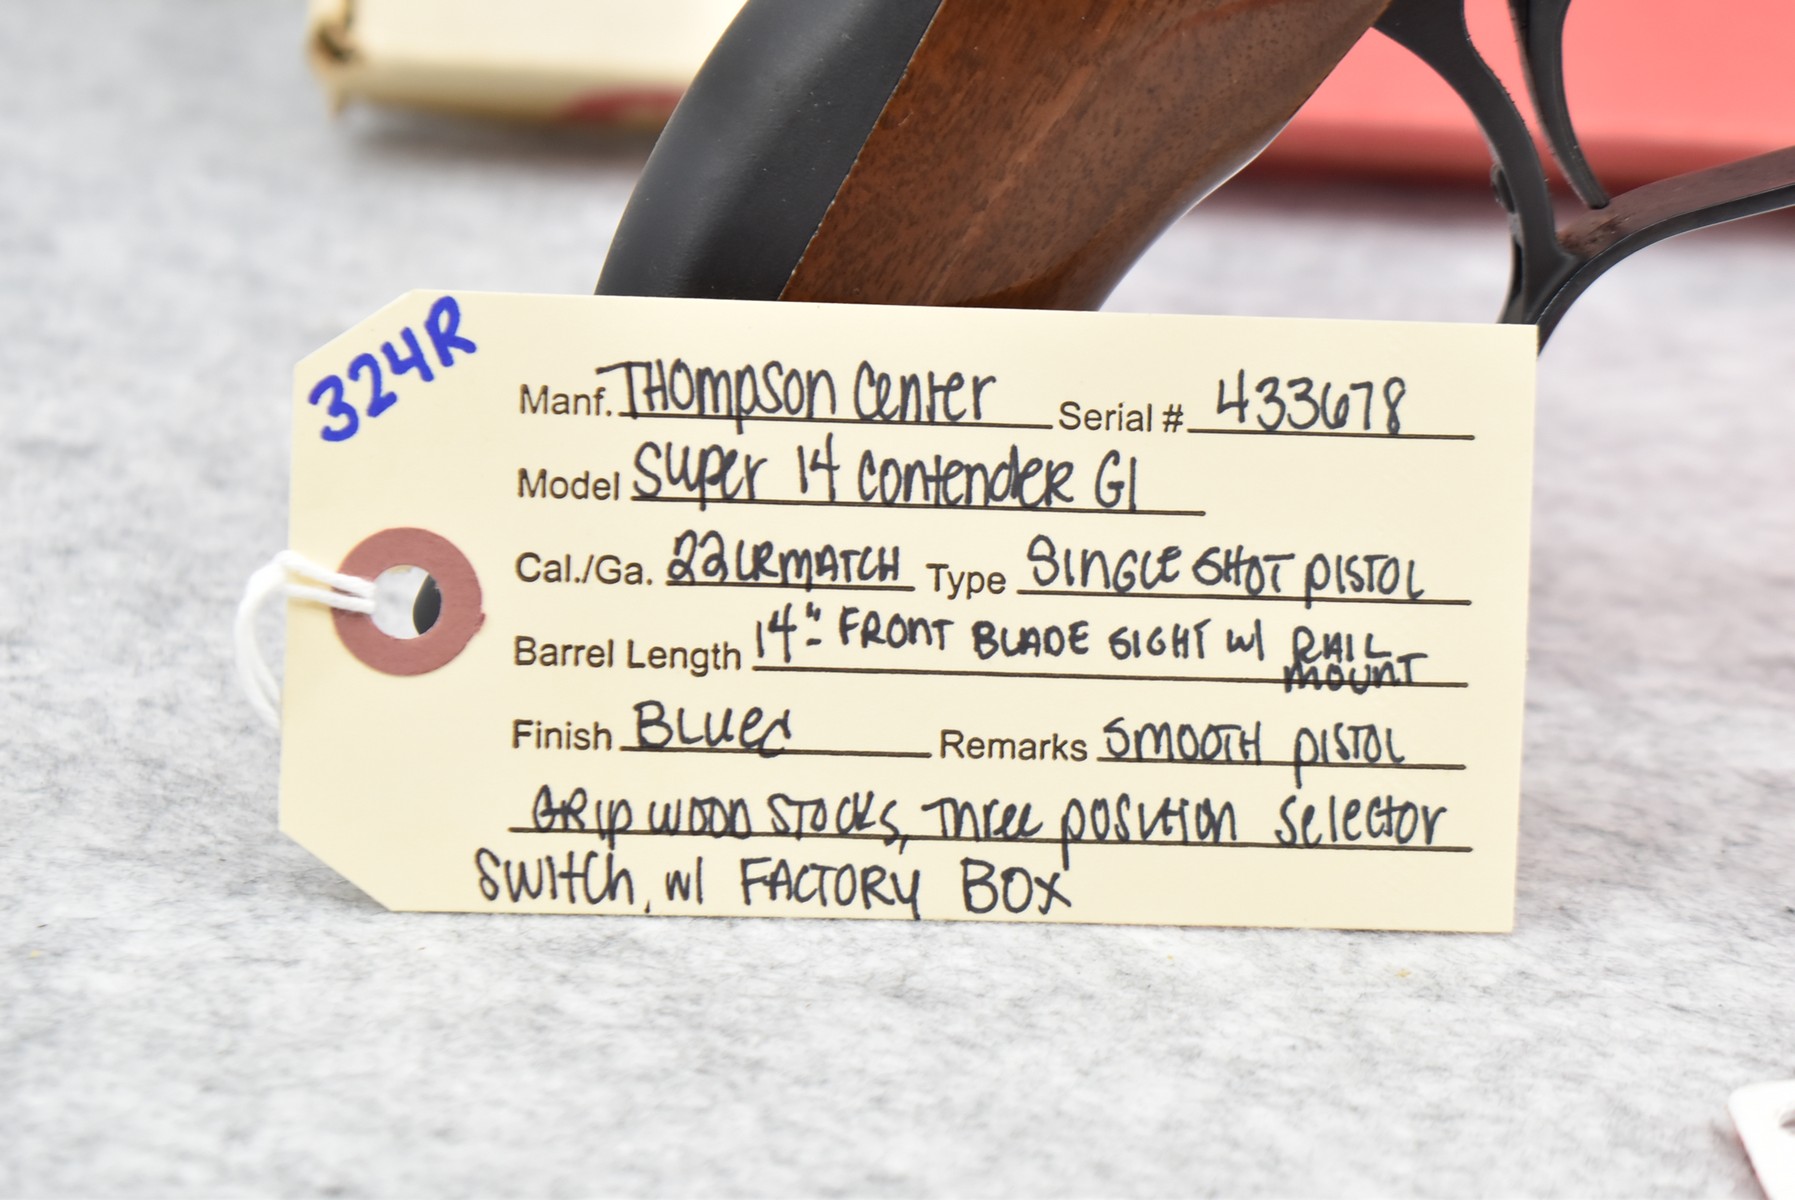 324R
Manf. THOMPSON CENTER Serial # 433678
Model SUPER 14 CONTENDER G1
Cal./Ga. 22LRMATCH Type SINGLE SHOT PISTOL
Barrel Length 14"- FRONT BLADE SIGHT W/ RAIL
MOUNT
Finish BLUED Remarks SMOOTH PISTOL
GRIP WOOD STOCKS, THREE POSITION SELECTOR
SWITCH, W/ FACTORY BOX